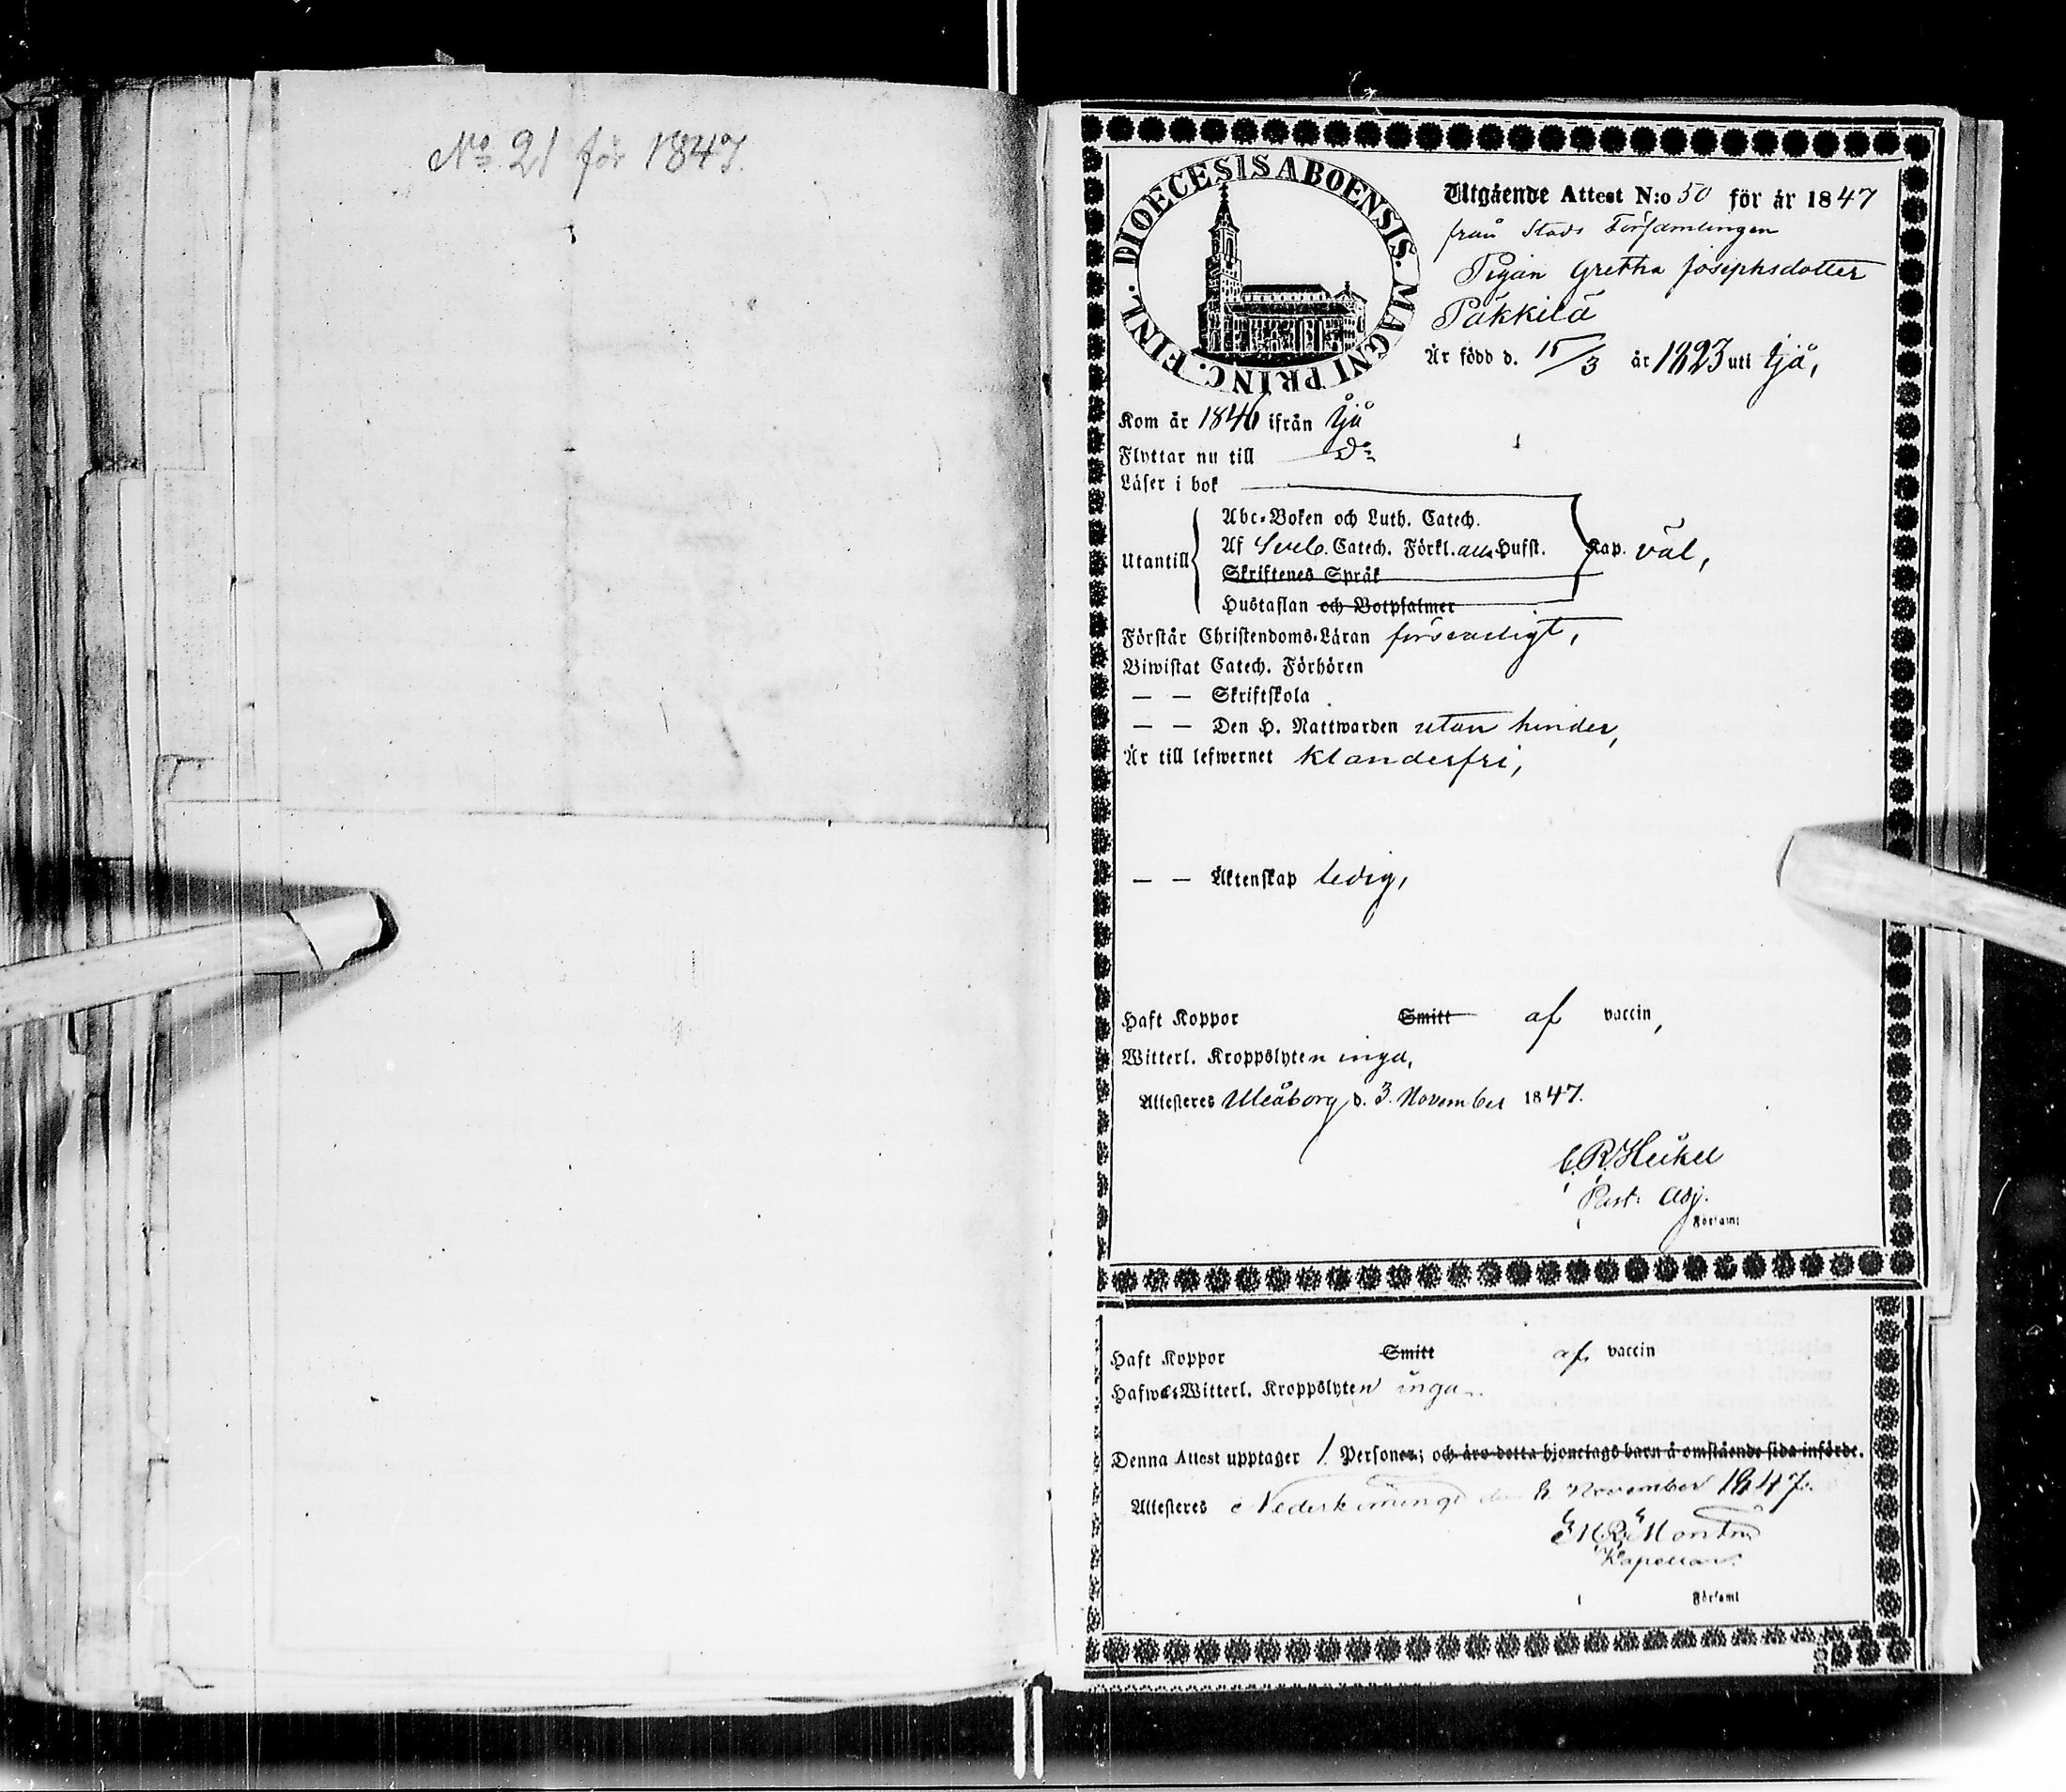 No 21 för 1847.
DIOECESIS ABOENSIS. MAGNI PRINC. FINL.
Utgående Attest N:o 50 för år 1847
från Stads Församlingen
Pigan Gretha Josephsdotter
Päkkilä
Är född d. 15/3 år 1823 uti Ijå,
Kom år 1846 ifrån Ijå
Flyttar nu till Do
Läser i bok
Utantill
Abc-Boken och Luth. Catech.
Af Sveb. Catech. Förkl. Hufst.
Kap. väl,
Skriftenes Språk
Hustaflan och Botpsalmer
Förstår Christendoms-Läran försvarligt,
Biwistat Catech. Förhören
— — Skriftskola
— — Den H. Nattwarden utan hinder,
Är till lefwernet klanderfri,
— — Äktenskap ledig,
Haft Koppor Smitt af vaccin,
Witterl. Kroppslyten inga,
Attesteres Uleåborg, d. 3. November 1847.
C. R. Heikel
Past. Adj.
Förs:aml
Haft Koppor Smitt af vaccin
Witterl. Kroppslyten inga.
Denna Attest upptager 1 Personer; och äro detta hjonelags barn å omstående sida införde.
Attesteres Nederkiminge den November 1847.
Kapellan.
Förs:aml